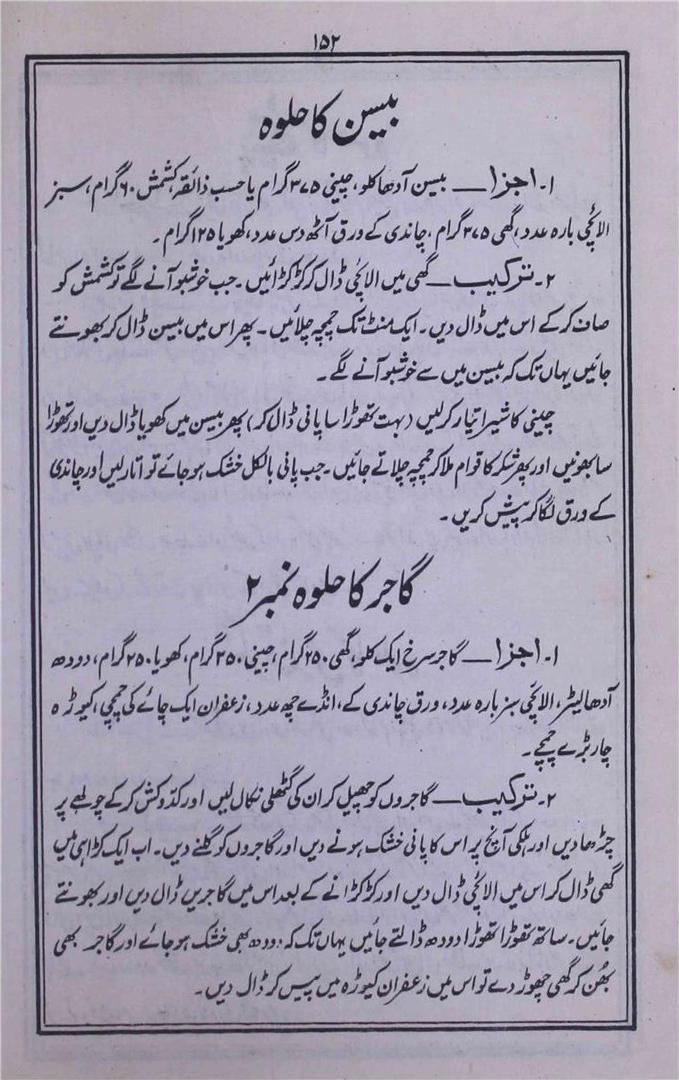 ۱۵۲
بیسن کا حلوہ
۱۔ اجزا — بیسن آدھا کلو، چینی ۳۷۵ گرام یا حسب ذائقہ، کشمش ۶۰ گرام، سبز
الائچی بارہ عدد، گھی ۳۷۵ گرام، چاندی کے ورق آٹھ دس عدد، کھویا ۱۲۵ گرام۔
۲۔ ترکیب — گھی میں الائچی ڈال کر کڑکڑائیں۔ جب خوشبو آنے لگے تو کشمش کو
صاف کر کے اس میں ڈال دیں۔ ایک منٹ تک چمچہ چلائیں۔ پھر اس میں بیسن ڈال کر بھونتے
جائیں یہاں تک کہ بیسن میں سے خوشبو آنے لگے۔
چینی کا شیرا تیار کر لیں (بہت تھوڑا سا پانی ڈال کر) پھر بیسن میں کھویا ڈال دیں اور تھوڑا
سا بھونیں اور پھر شکر کا قوام ملا کر چمچہ چلاتے جائیں۔ جب پانی بالکل خشک ہو جائے تو اتار لیں اور چاندی
کے ورق لگا کر پیش کریں۔
گاجر کا حلوہ نمبر ۲
۱۔ اجزا — گاجر سرخ ایک کلو، گھی ۲۵۰ گرام، چینی ۲۵۰ گرام، کھویا ۲۵۰ گرام، دودھ
آدھا لیٹر، الائچی سبز بارہ عدد، ورق چاندی کے، انڈے چھ عدد، زعفران ایک چائے کی چمچی، کیوڑہ
چار بڑے چمچے۔
۲۔ ترکیب — گاجروں کو چھیل کر ان کی گٹھلی نکال لیں اور کدوکش کر کے چولہے پر
چڑھا دیں اور ہلکی آنچ پر اس کا پانی خشک ہونے دیں اور گاجروں کو گلنے دیں۔ اب ایک کڑاہی میں
گھی ڈال کر اس میں الائچی ڈال دیں اور کڑکڑانے کے بعد اس میں گاجریں ڈال دیں اور بھونتے
جائیں۔ ساتھ تھوڑا تھوڑا دودھ ڈالتے جائیں یہاں تک کہ دودھ بھی خشک ہو جائے اور گاجر بھی
بھُن کر گھی چھوڑ دے تو اس میں زعفران کیوڑہ میں پیس کر ڈال دیں۔